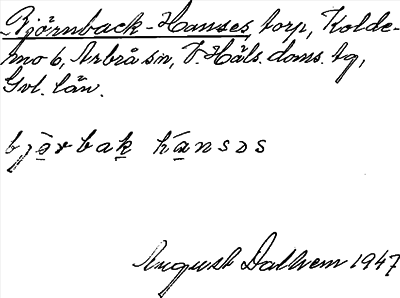 Björnback-Hanses, torp, Kolde-
mo 6, Arbrå sn, V. Häls. doms. tg,
Gvl. län.
bjørbak hansɔs
August Dalhem 1947